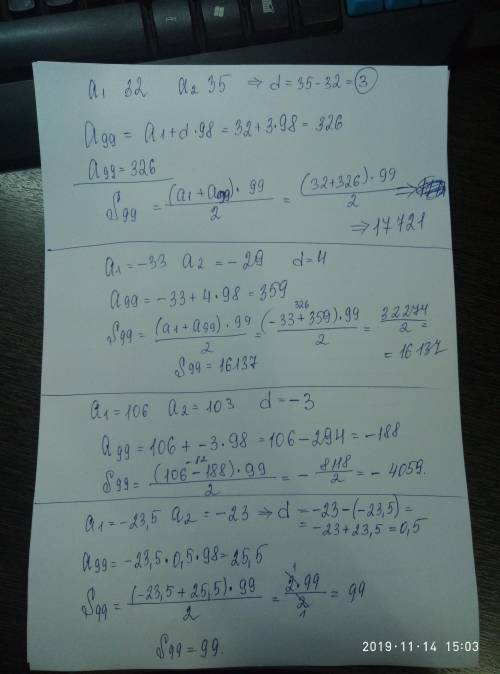 a₁ 32 a₂ 35 ⇒ d = 35-32 = 3
a₉₉ = a₁+d·98 = 32+3·98 = 326
a₉₉ = 326
S₉₉ = (a₁+a₉₉)·99 / 2 = (32+326)·99 / 2 ⇒
⇒ 17721
a₁ = -33 a₂ = -29 d = 4
a₉₉ = -33 + 4·98 = 359
S₉₉ = (a₁+a₉₉)·99 / 2 = (-33+359)·99 / 2 = 32274 / 2 =
326
= 16137
S₉₉ = 16137
a₁ = 106 a₂ = 103 d = -3
a₉₉ = 106 + -3·98 = 106-294 = -188
-82
S₉₉ = (106-188)·99 / 2 = - 8118 / 2 = -4059.
a₁ = -23,5 a₂ = -23 ⇒ d = -23-(-23,5) =
= -23+23,5 = 0,5
a₉₉ = -23,5·0,5·98 = 25,5
S₉₉ = (-23,5+25,5)·99 / 2 = 2·99 / 2 = 99
1
1
S₉₉ = 99.
2019·11·14 15:03